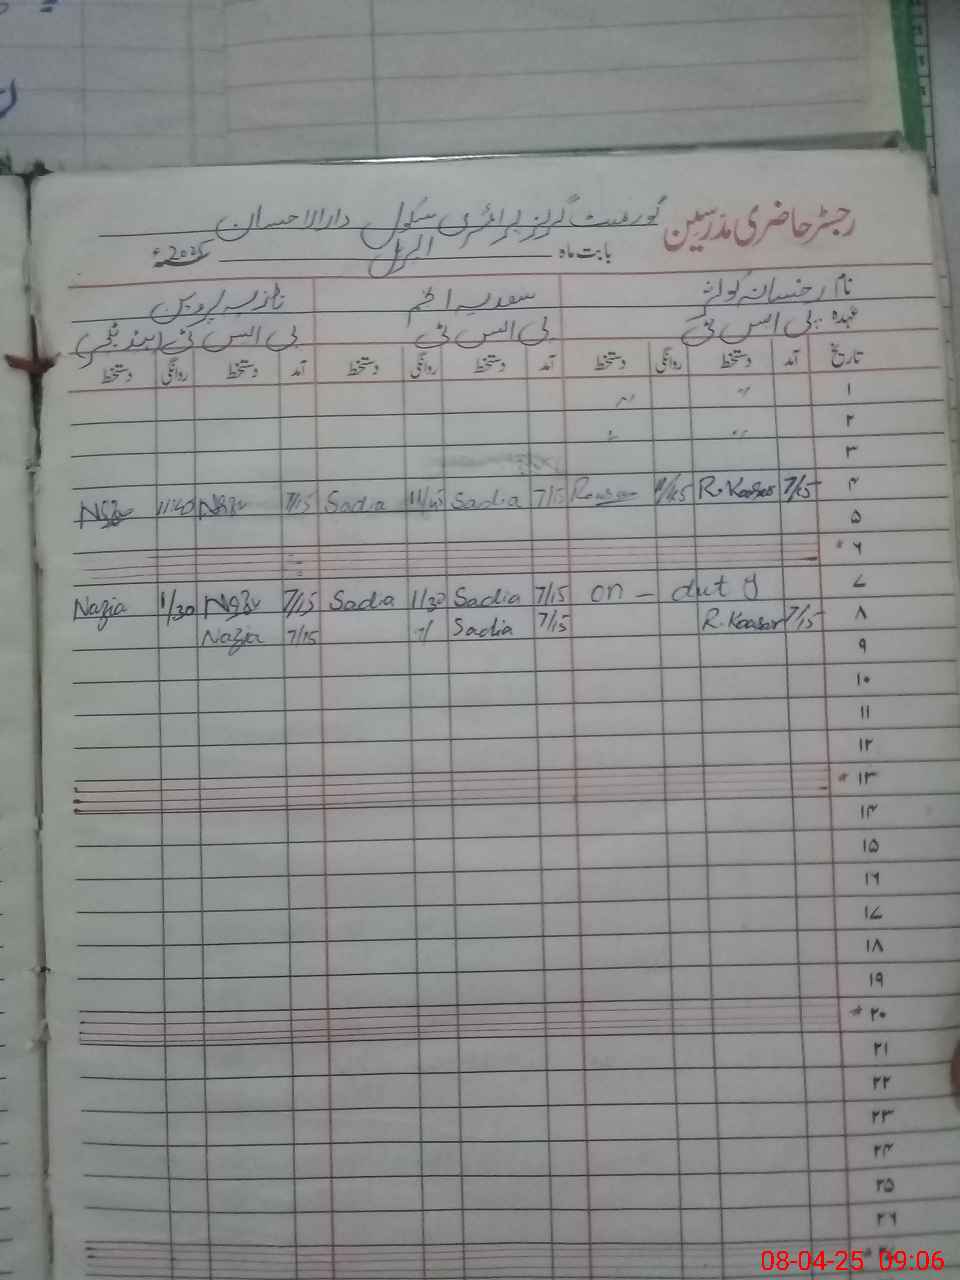 رجسٹر حاضری مدرسین گورنمنٹ گرلز پرائمری سکول دارالاحسان
بابت ماہ اپریل 2025ء
نام رخسانہ کوثر سعدیہ انجم نازیہ پروین
عہدہ پی ایس ٹی پی ایس ٹی پی ایس ٹی (ہیڈ ٹیچر)
تاریخ آمد دستخط روانگی دستخط آمد دستخط روانگی دستخط آمد دستخط روانگی دستخط
۱ 〃 〃
۲ 〃 〃
۳
۴ 7/15 R. Kaosar 11/45 7/15 Sadia 11/45 Sadia 7/15 11:40
۵
* ۶
۷ on - duty 7/15 Sadia 1/30 Sadia 7/15 1/30 Nazia
۸ 7/15 R. Kaosar 7/15 Sadia 7/ 7/15 Nazia
۹
۱۰
۱۱
۱۲
* ۱۳
۱۴
۱۵
۱۶
۱۷
۱۸
۱۹
* ۲۰
۲۱
۲۲
۲۳
۲۴
۲۵
۲۶
08-04-25 09:06